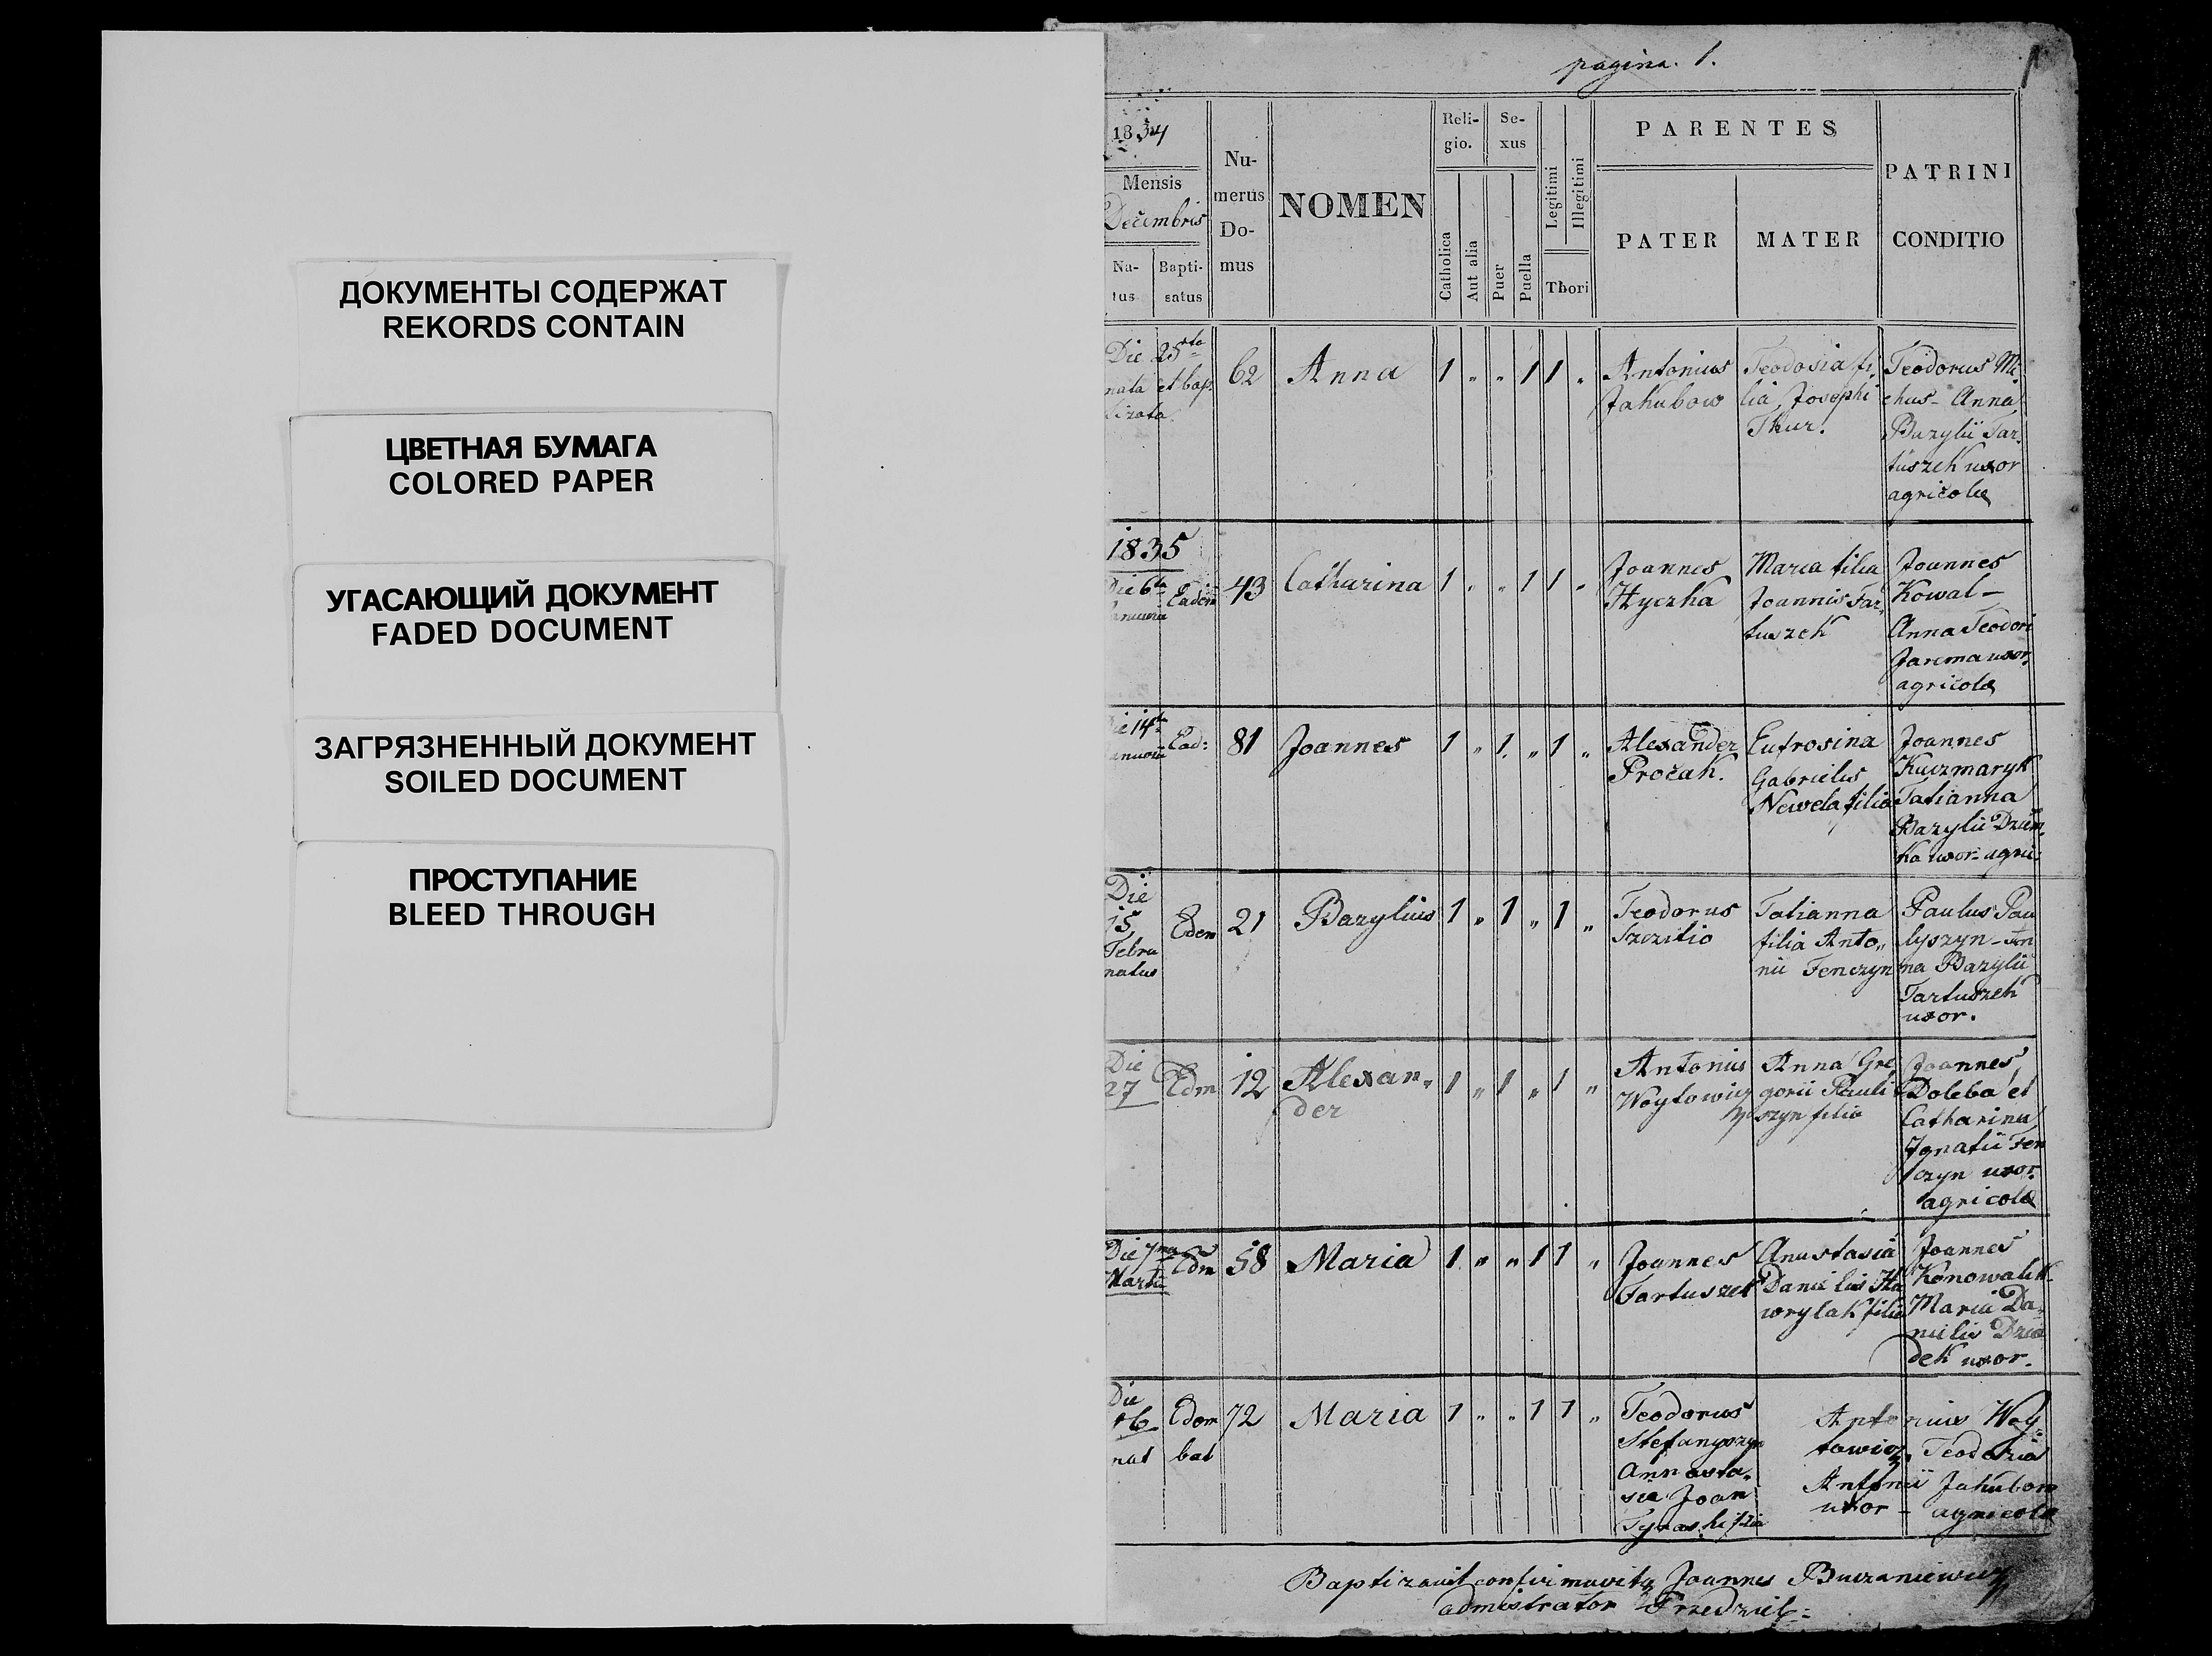 ДОКУМЕНТЫ СОДЕРЖАТ
REKORDS CONTAIN
ЦВЕТНАЯ БУМАГА
COLORED PAPER
УГАСАЮЩИЙ ДОКУМЕНТ
FADED DOCUMENT
ЗАГРЯЗНЕННЫЙ ДОКУМЕНТ
SOILED DOCUMENT
ПРОСТУПАНИЕ
BLEED THROUGH
pagina. 1.
1834
Mensis
Decembris
Na-
tus
Bapti-
satus
Nu-
merus
Do-
mus
NOMEN
Reli-
gio.
Catholica
Aut alia
Se-
xus
Puer
Puella
Legitimi
Illegitimi
Thori
PARENTES
PATER
MATER
PATRINI
CONDITIO
Die 25ta
nata et bap
tizata
62
Anna
1 " " 1 1 "
Antonius
Jakubow
Teodosia fi,
lia Josephi
Thur.
Teodorus Mi
chus - Anna
Bazylii Far,
tuszek uxor
agricolae
1835
Die 6ta
Januarii
Eadem
43
Catharina
1 " " 1 1 "
Joannes
Hyczka
Maria filia
Joannis Far,
tuszek
Joannes
Kowal -
Anna Teodori
Jarema uxor,
agricolae
Die 14ta
Januarii
Ead:
81
Joannes
1 " 1 " 1 "
Alexander
Procak.
Eufrosina
Gabrielis
Newela filia
Joannes
Kuczmaryk
Tatianna
Bazylii
uxor agri:
Die
15
Febru
natus
Edem
21
Bazylius
1 " 1 " 1 "
Teodorus
Tatianna
filia Anto,,
nii Fenczyn
Paulus Pau
lyszyn - An
na Bazylii
Fartuszek
uxor.
Die
27
Edm
12
Alexan,
der
1 " 1 " 1 "
Antonius
Woytowicz
Anna Gre,
gorii Pauli
szyn filia
Joannes
Doleba et
Catharina
Ignatii Fen
czyn uxor
agricolae
Die 7ma
Martii
Edm
58
Maria
1 " " 1 1 "
Joannes
Fartuszek
Anastasia
Danielis Ha
wrylak filia
Joannes
Konowalik
Maria Da,
nielis Dzia
dek uxor.
Die
16
nat
Edem
bat
72
Maria
1 " " 1 1 "
Teodorus
Stefanyszyn
Annasta,
sia Joan
filia
Antonius Woy
towicz, Teodozia
Antonii Jakubow
uxor - agricolae
Baptizavit confirmavitq Joannes
admistrator